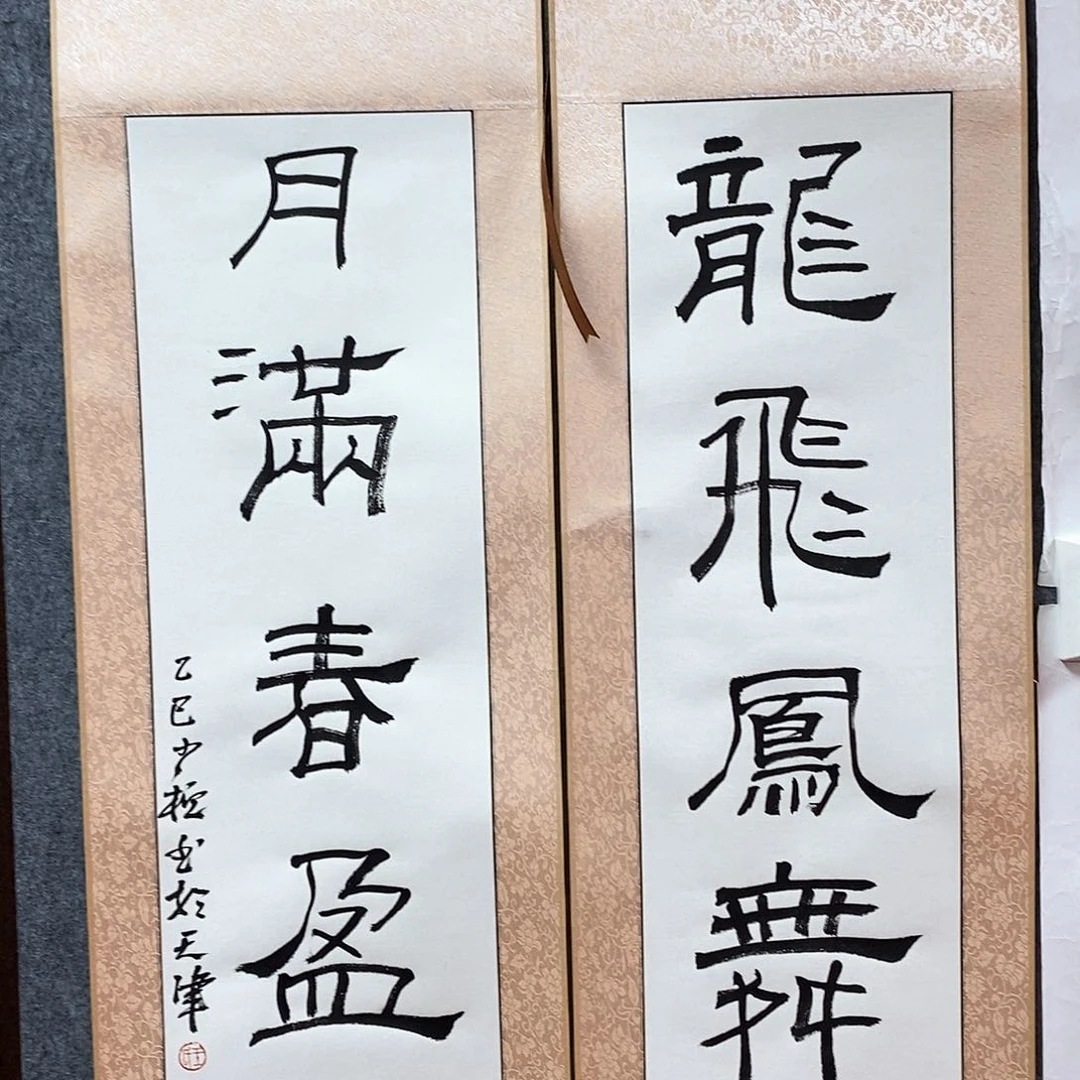 龍飛鳳舞
月滿春盈
乙巳少恒书於天津